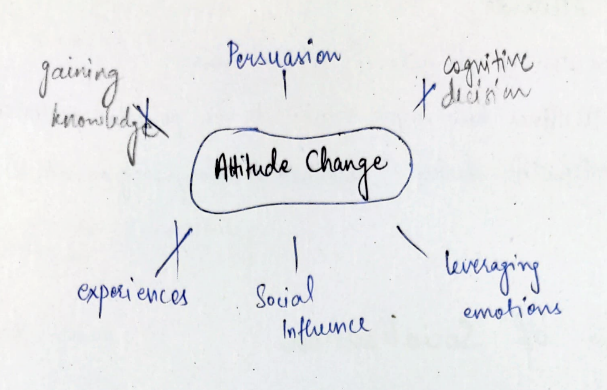 Persuasion
gaining
knowledge
cognitive
decision
Attitude Change
experiences
Social
Influence
leveraging
emotions